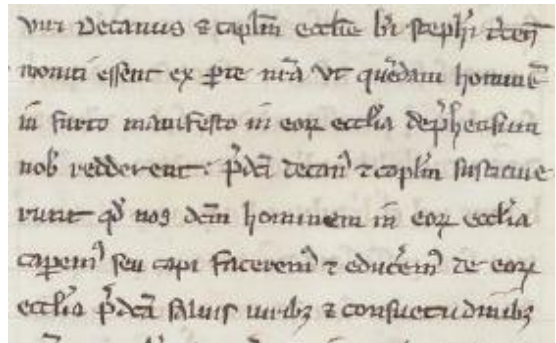 viri Decanus ⁊ capl̃m eccl̃ie bi̾ steph̾i tͥcen̾
moniti essent ex ꝑte nr̃a vt quẽdam hominẽ
in furto manifesto in eoꝝ eccl̃ia dep̾hensum
nob̾ redderent: p̾dc̃i decan⁹ ⁊ capl̃m sustinue
runt qd̾ nos dc̃m hominem in eoꝝ eccl̃ia
caꝑem⁹ seu capi facerem⁹ ⁊ educ̾em⁹ de eoꝝ
eccl̃ia p̾dc̃a saluis iuribꝫ ⁊ consuetudinibꝫ